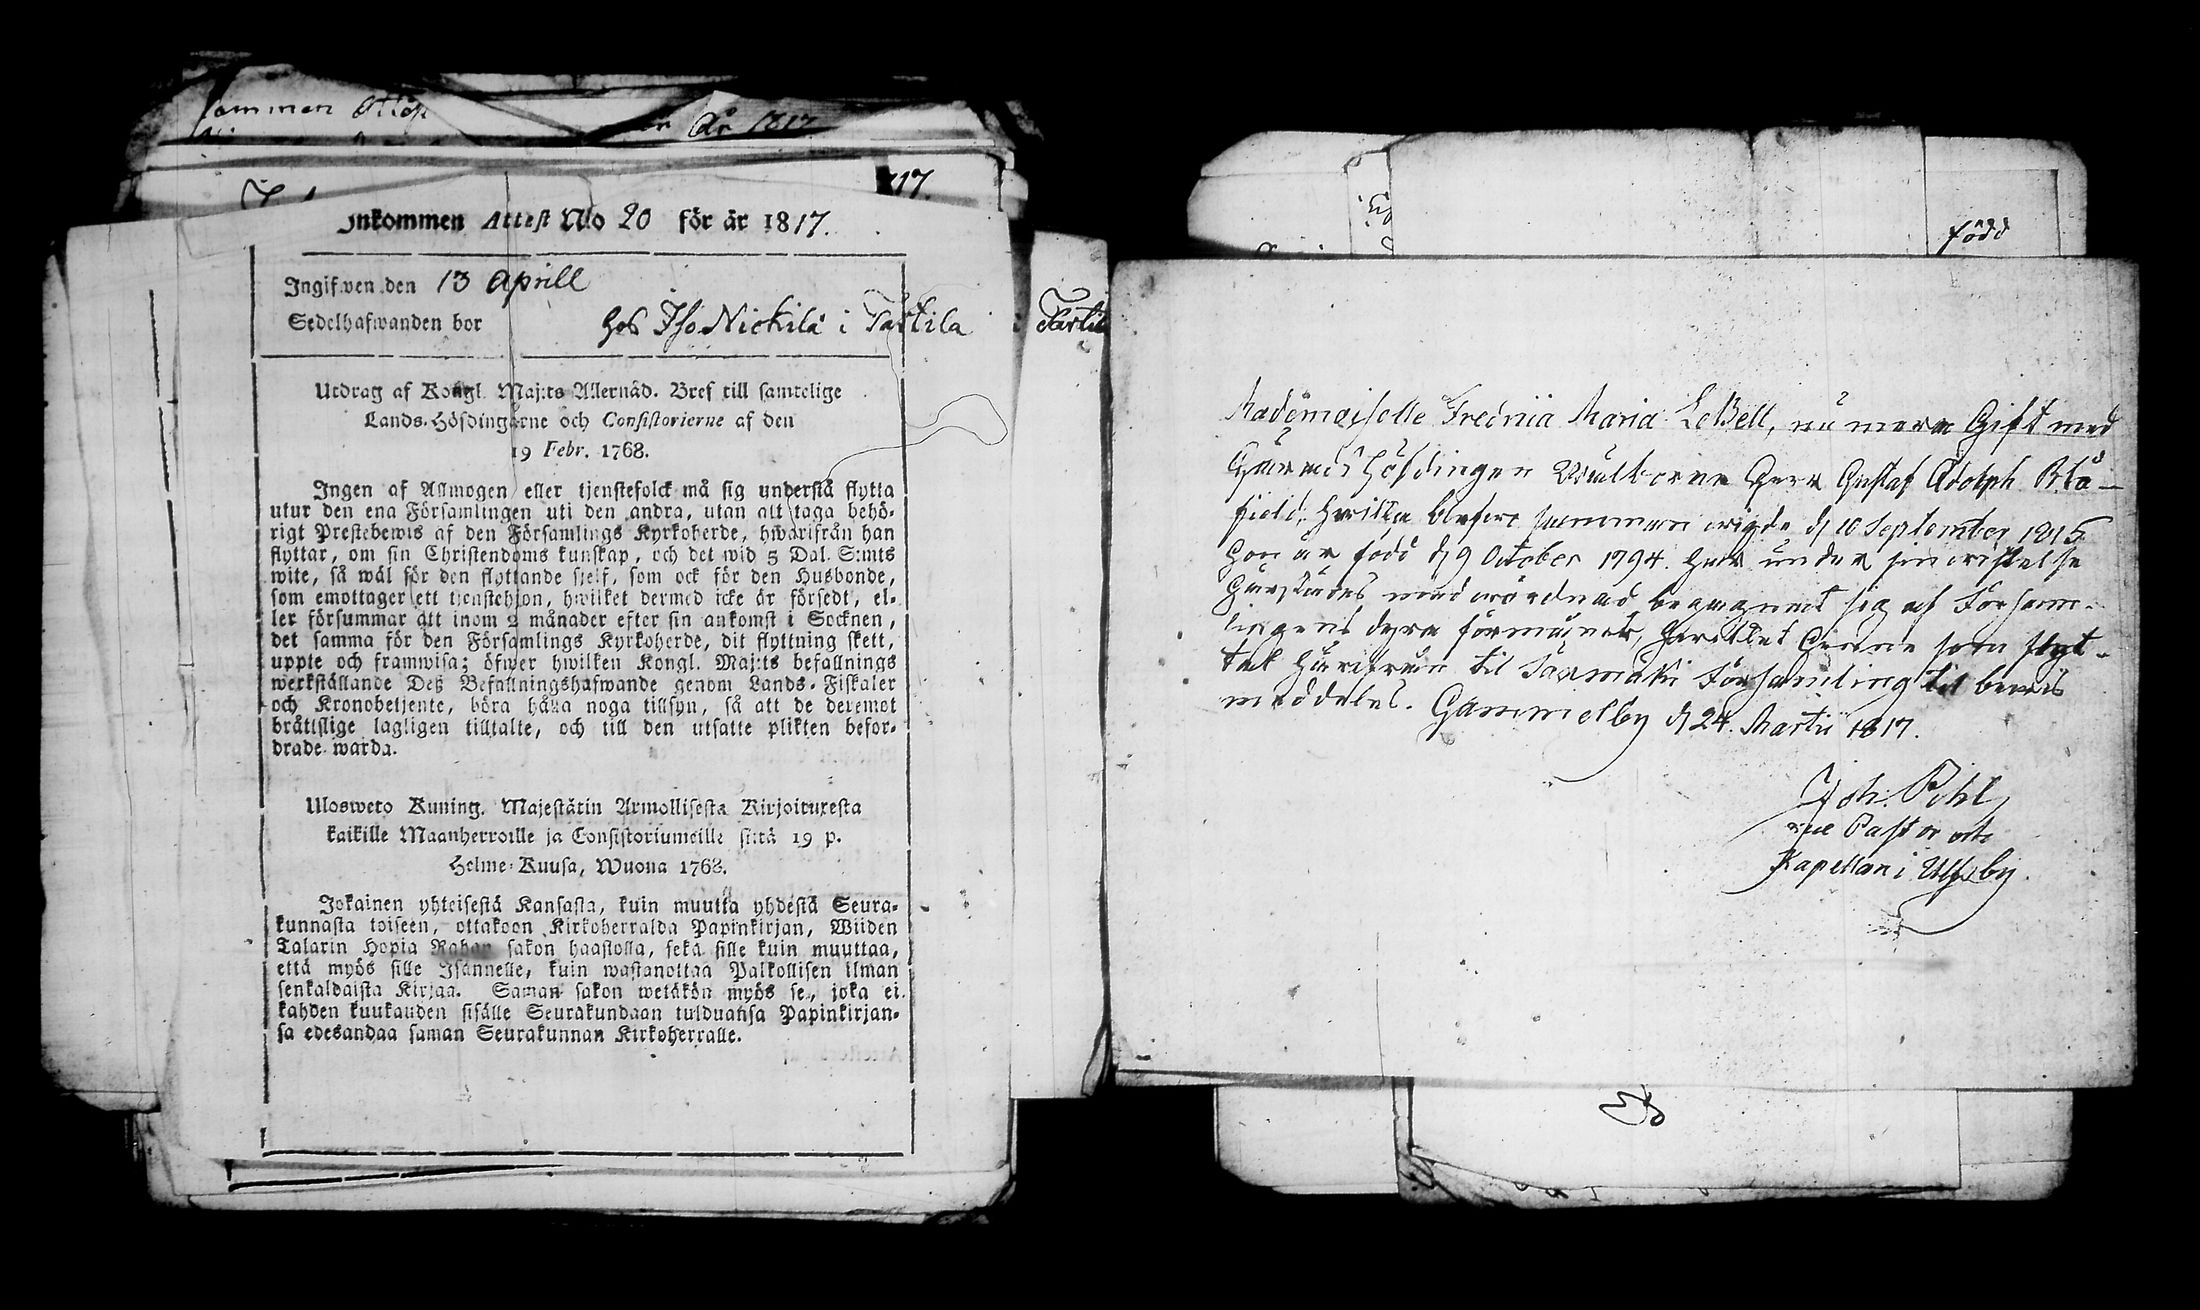 ammen
År 1817
17.
Inkommen Attest No 20 för år 1817.
Ingifven den 13 Aprill
Sedelhafwanden bor hos Iso Nickilä i Tastila
Utdrag af Kongl. Maj:ts Allernåd. Bref till samtelige
Lands-Höfdingarne och Consistorierne af den
19 Febr. 1768.
Ingen af Allmogen eller tjenstefolck må sig understå flytta
utur den ena Församlingen uti den andra, utan att taga behö-
rigt Prestebewis af den Församlings Kyrkoherde, hwarifrån han
flyttar, om sin Christendoms kunskap, och det wid 5 Dal. S:mts
wite, så wäl för den flyttande sjelf, som ock för den Husbonde,
som emottager ett tjenstehjon, hwilket dermed icke är försedt, el-
ler försummar att inom 2 månader efter sin ankomst i Socknen,
det samma för den Församlings Kyrkoherde, dit flyttning skett,
uppte och framwisa; öfwer hwilken Kongl. Maj:ts befallnings
werkställande Deß Befallningshafwande genom Lands-Fiskaler
och Kronobetjente, böra hålla noga tillsyn, så att de deremot
bråttslige lagligen tilltalte, och till den utsatte plikten befor-
drade warda.
Ulosweto Kuning. Majestätin Armollisesta Kirjoituxesta
kaikille Maanherroille ja Consistoriumeille siitä 19 p.
Helme-Kuusa, Wuona 1768.
Jokainen yhteisestä Kansasta, kuin muutta yhdestä Seura-
kunnasta toiseen, ottakoon Kirkoherralda Papinkirjan, Wiiden
Talarin Hopia Rahan sakon haastolla, sekä sille kuin muuttaa,
että myös sille Isännelle, kuin wastanottaa Palkollisen ilman
senkaldaista Kirjaa. Saman sakon wetäkön myös se, joka ei
kahden kuukauden sisälle Seurakundaan tulduansa Papinkirjan-
sa edesandaa saman Seurakunnan Kirkoherralle.
född
Mademoiselle Fredrica Maria LeBell, nu mera Gift med
Härads Höfdingen Wälborne Herr Gustaf Adolph Blå-
field, hwilka blefwo samman wigde d 10 September 1815
Hon är född d 9 October 1794. Har under sin wistelse
härstädes med wördnad begagnat sig af Församlin-
gens dyra förmåner, hwilket Henne som flyt-
tat härifrån til Säxmäki Församling til bewis
meddeles. Gammelby d 24 Martii 1817.
Joh. Pihl
vice Pastor och
Kapellan i Ulfsby.